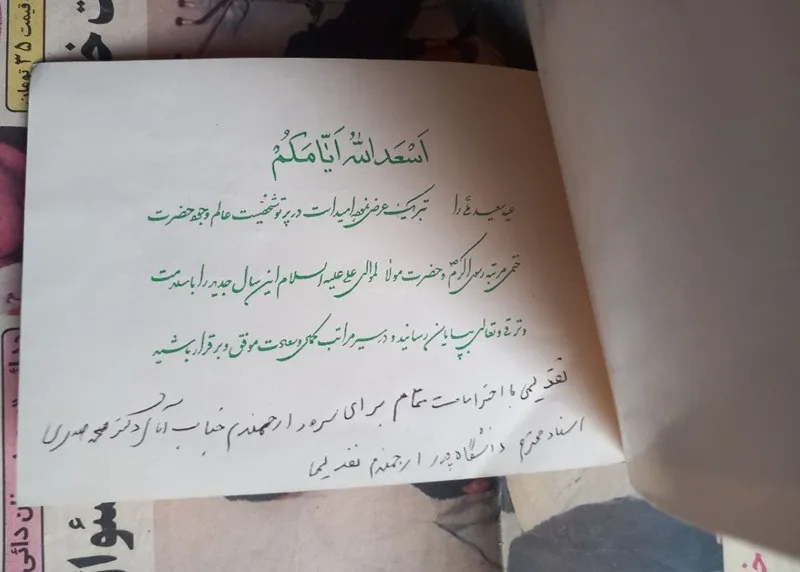 قیمت ۳۵ تومان
اَسْعَدَ اللّٰهُ اَیّٰامَکُمْ
عید سعید را تبریک عرض نموده امید است در پرتو شخصیت عالم وجود حضرت
ختمی مرتبه رسول اکرم ص و حضرت مولا الموالی علی علیه السلام این سال جدید را با سلامت
و ترقی و تعالی بپایان رسانید و در سیر مراتب کمالی و سعادت موفق و برقرار باشید
تقدیمی با احترامات تمام برای سرور ارجمندم جناب آقای دکتر محمد
استاد محترم دانشگاه پدر ارجمندم تقدیم
دائی